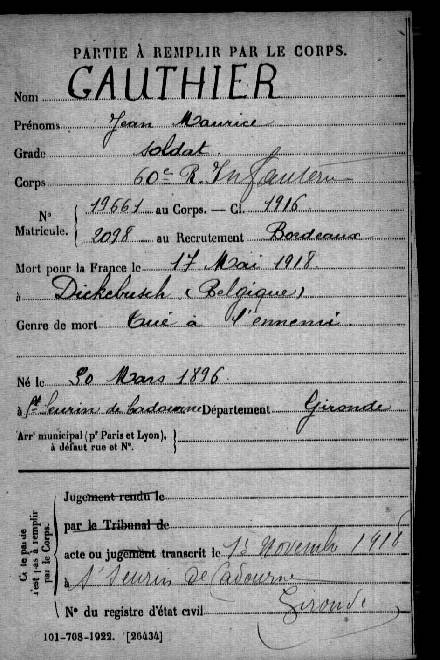 PARTIE À REMPLIR PAR LE CORPS.
Nom GAUTHIER
Prénoms Jean Maurice
Grade soldat
Corps 60e R. Infanterie
Nos Matricule. { 19661 au Corps. — Cl. 1916
2098 au Recrutement Bordeaux
Mort pour la France le 17 Mai 1918
à Dickebusch (Belgique)
Genre de mort Tué à l'ennemi
Né le 30 Mars 1896
à St Seurin de Cadourne Département Gironde
Arrt municipal (pr Paris et Lyon),
à défaut rue et N°.
Cette partie
n'est pas à remplir
par le Corps.
Jugement rendu le
par le Tribunal de
acte ou jugement transcrit le 13 Novembre 1918
à St Seurin de Cadourne
N° du registre d'état civil Gironde
101-708-1922. [26434]